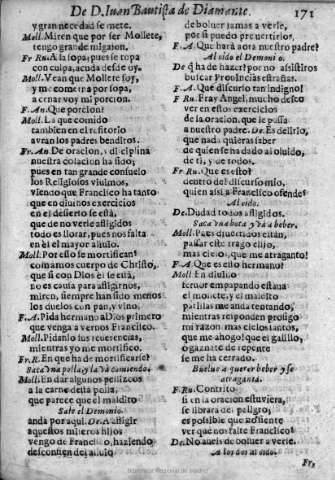 De D. Iuan Bautista de Diamante. 171
y gran necedad se mete.
Moll. Miren que por ser Mollete,
tengo grande migaion.
Fr. Ru. A la sopa, pues se topa
con culpa, acuda desde oy.
Moll. Vean que Mollete soy,
y me comerà por sopa,
a cenar voy mi porcion.
F. An. Que porcion?
Moll. La que comido
tambien en el refitorio
avran los padres benditos.
Fr. An. De oracion, y diciplina
nuestra colacion ha sido;
pues en tan grande consuelo
los Religiosos viuimos,
viendo que Francisco ha tanto
que en diuinos exercicios
en el desierto se està,
que de no verle afligidos
todo es llorar, pues nos falta
en èl el mayor aliuio.
Moll. Por esso se mortifican?
comamos cuerpo de Christo,
que si con Dios èl se està,
no es causa para afligirnos,
miren, siempre han sido menos
los duelos con pan, y vino.
F. A. Pida hermano a Dios primero
que venga a vernos Francisco.
Moll. Pidanlo sus reuerencias,
mientras yo me mortifico.
Fr. R. En que ha de mortificarse?
Saca vna polla, y la và comiendo.
Moll. En dar algunos pellizcos
a la carne desta polla,
que parece que el maldito
Sale el Demonio.
anda por aqui. De. A afligir
aquestos miseros hijos
vengo de Francisco, haziendo
desconfien del aliuio
de boluer jamas a verle,
por si puedo peruertirlos.
F. A. Que harà aora nuestro padre?
Al oido el Demonio.
De. q̃ ha de hazer? por no assistiros
buscar Prouincias estrañas.
F. A. Que discurso tan indigno!
F. Ru. Fray Angel, mucho deseo
ver en estos exercicios
de la oracion, que le passa
a nuestro padre. De. Es delirio,
que nada quieras saber
de quien se ha dado al oluido,
de ti, y de todos.
F. Ru. Que es esto?
dentro del discurso mio,
quien assi a Francisco ofende?
Al oido.
De. Dudad todos afligidos.
Saca vna bota, y và a beber.
Moll. Pues diuertidos estàn,
passar este trago elijo,
mas cielo, que me atraganto!
F. A. Que es esto hermano?
Moll. En diuino
feruor empapando estaua
el mollete, y el maldito
patillas me anda tentando,
mientras responden prosigo
mi razon, mas cielos santos,
que me ahogo! que el gasnillo,
o gaznate de repente
se me ha cerrado.
Buelue a querer beber, y se
atraganta.
F. Ru. Contrito
si en la oracion estuviera,
se librara del peligro;
es possible que no siente
ver que nos falte Francisco?
De. No aueis de boluer a verle.
A los dos al oido.
Fr,